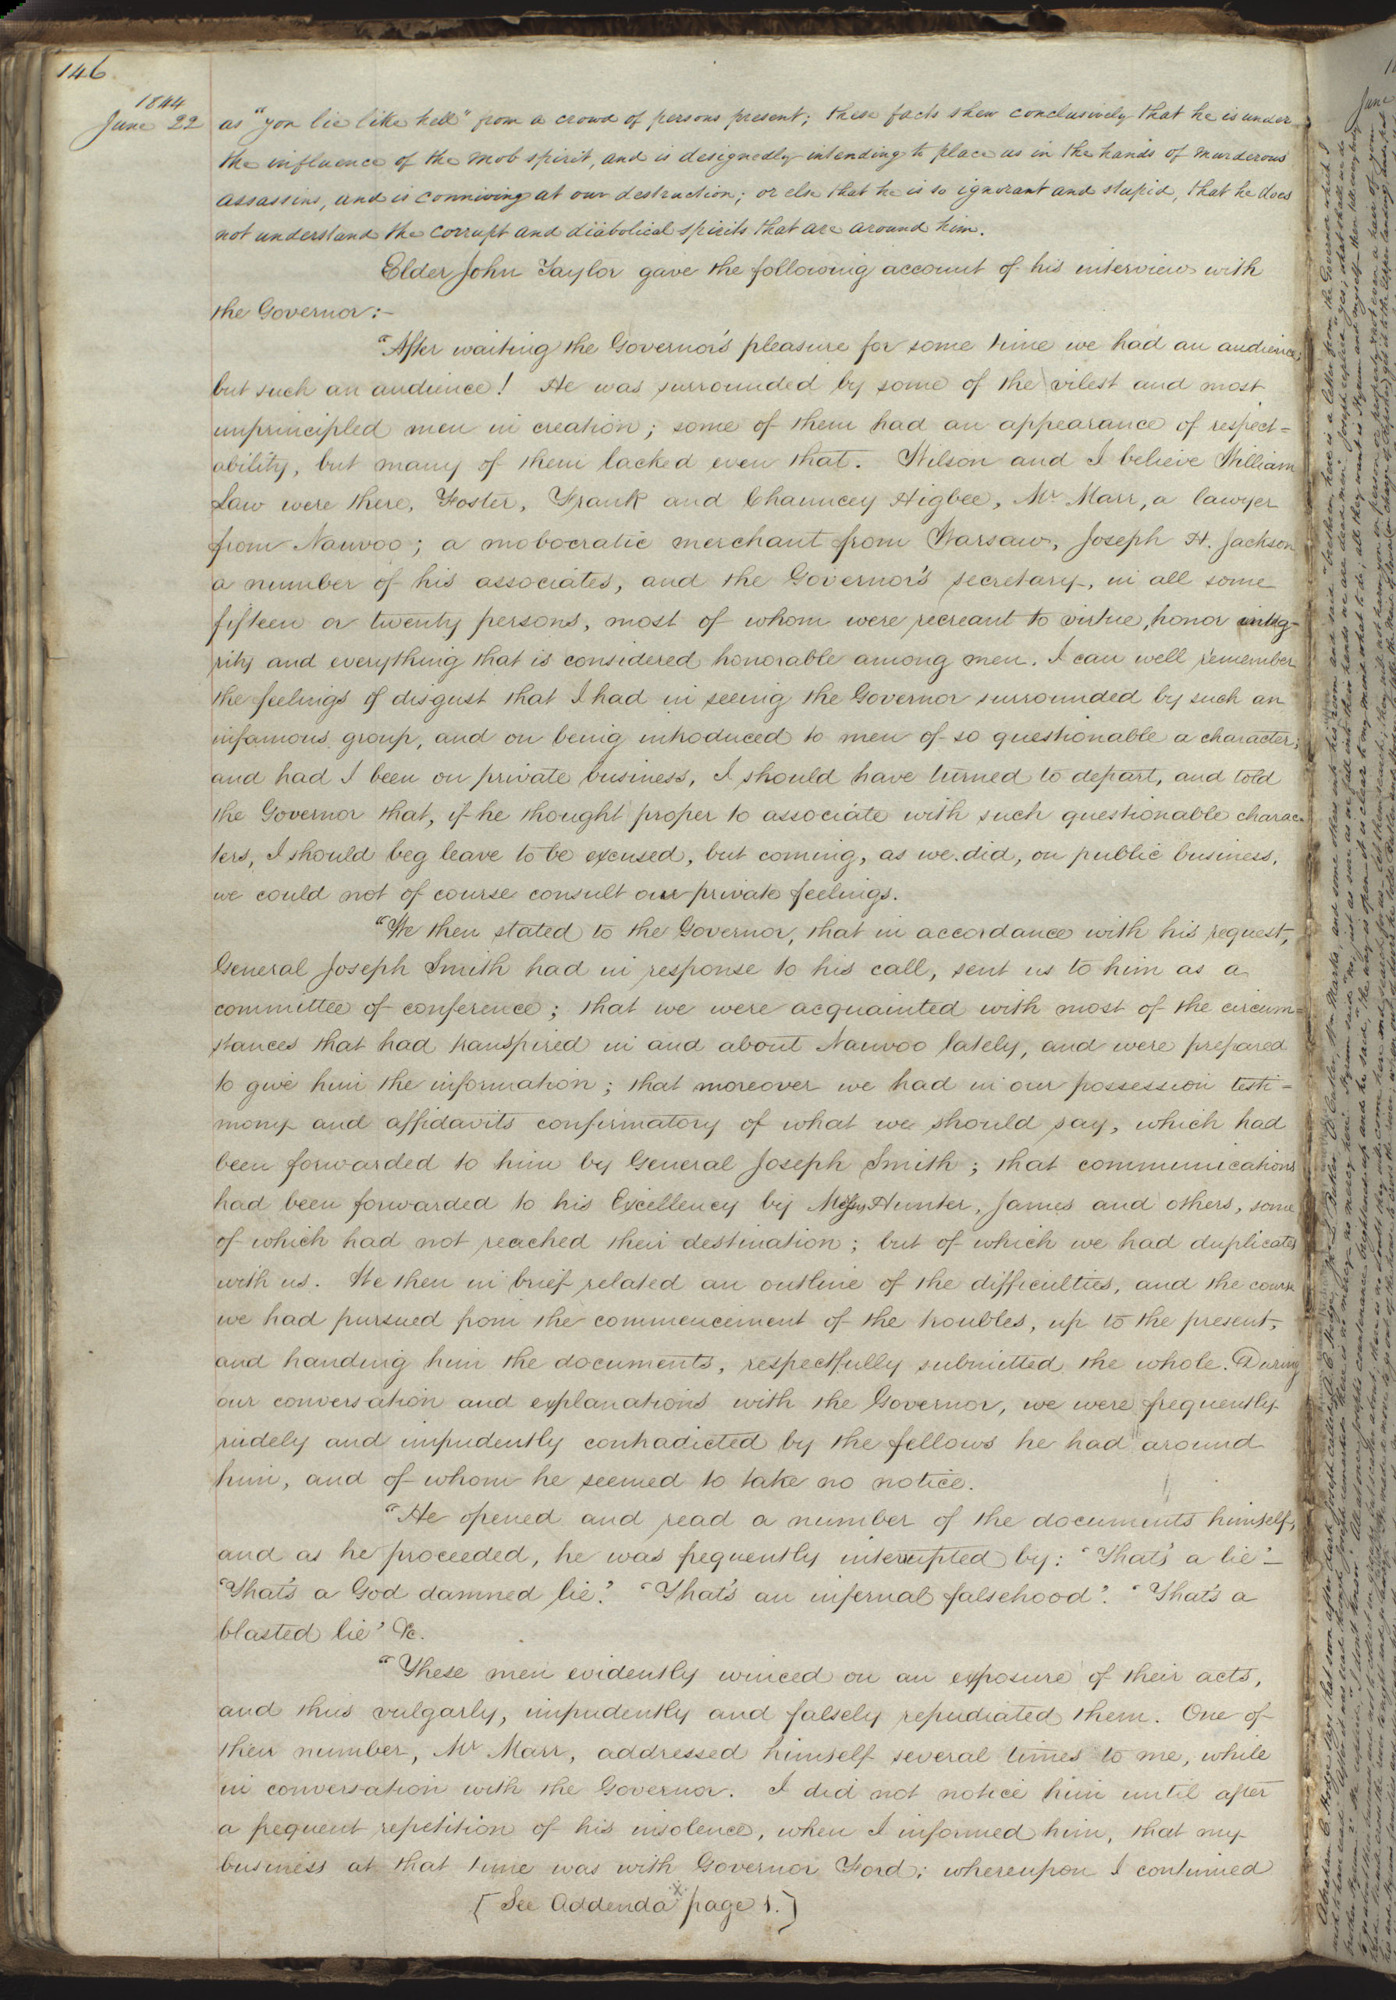 146
1844
June 22
as "you lie like hell" from a crowd of persons present; these facts shew conclusively that he is under
the influence of the mob spirit, and is designedly intending to place us in the hands of murderous
assassins, and is conniving at our destruction; or else that he is so ignorant and stupid, that he does
not understand the corrupt and diabolical spirits that are around him.
Elder John Taylor gave the following account of his interview with
the Governor:-
"After waiting the Governor's pleasure for some time we had an audience;
but such an audience! He was surrounded by some of the vilest and most
unprincipled men in creation; some of them had an appearance of respect=
ability, but many of them lacked even that. Wilson and I believe William
Law were there, Foster, Frank and Chauncey Higbee, Mr Marr, a lawyer
from Nauvoo; a mobocratic merchant from Warsaw, Joseph H. Jackson
a number of his associates, and the Governor's secretary, in all some
fifteen or twenty persons, most of whom were recreant to virtue, honor integ-
rity and everything that is considered honorable among men. I can well remember
the feelings of disgust that I had in seeing the Governor surrounded by such an
infamous group, and on being introduced to men of so questionable a character;
and had I been on private business, I should have turned to depart, and told
the Governor that, if he thought proper to associate with such questionable charac-
ters, I should beg leave to be excused, but coming, as we did, on public business,
we could not of course consult our private feelings.
"We then stated to the Governor, that in accordance with his request,
General Joseph Smith had in response to his call, sent us to him as a
committee of conference; that we were acquainted with most of the circum=
stances that had transpired in and about Nauvoo lately, and were prepared
to give him the information; that moreover we had in our possession testi=
mony and affidavits confirmatory of what we should say, which had
been forwarded to him by General Joseph Smith; that communications
had been forwarded to his Excellency by Messrs Hunter, James and others, some
of which had not reached their destination; but of which we had duplicates
with us. We then in brief related an outline of the difficulties, and the course
we had pursued from the commencement of the troubles, up to the present,
and handing him the documents, respectfully submitted the whole. During
our conversation and explanations with the Governor, we were frequently
rudely and impudently contradicted by the fellows he had around
him, and of whom he seemed to take no notice.
"He opened and read a number of the documents himself,
and as he proceeded, he was frequently interrupted by: 'That's a lie'-
'That's a God damned lie'. 'That's an infernal falsehood'. 'That's a
blasted lie' &c.
"These men evidently winced on an exposure of their acts,
and thus vulgarly, impudently and falsely repudiated them. One of
their number, Mr Marr, addressed himself several times to me, while
in conversation with the Governor. I did not notice him until after
a frequent repetition of his insolence, when I informed him, that my
business at that time was with Governor Ford; whereupon I continued
[See Addenda X page 1.]